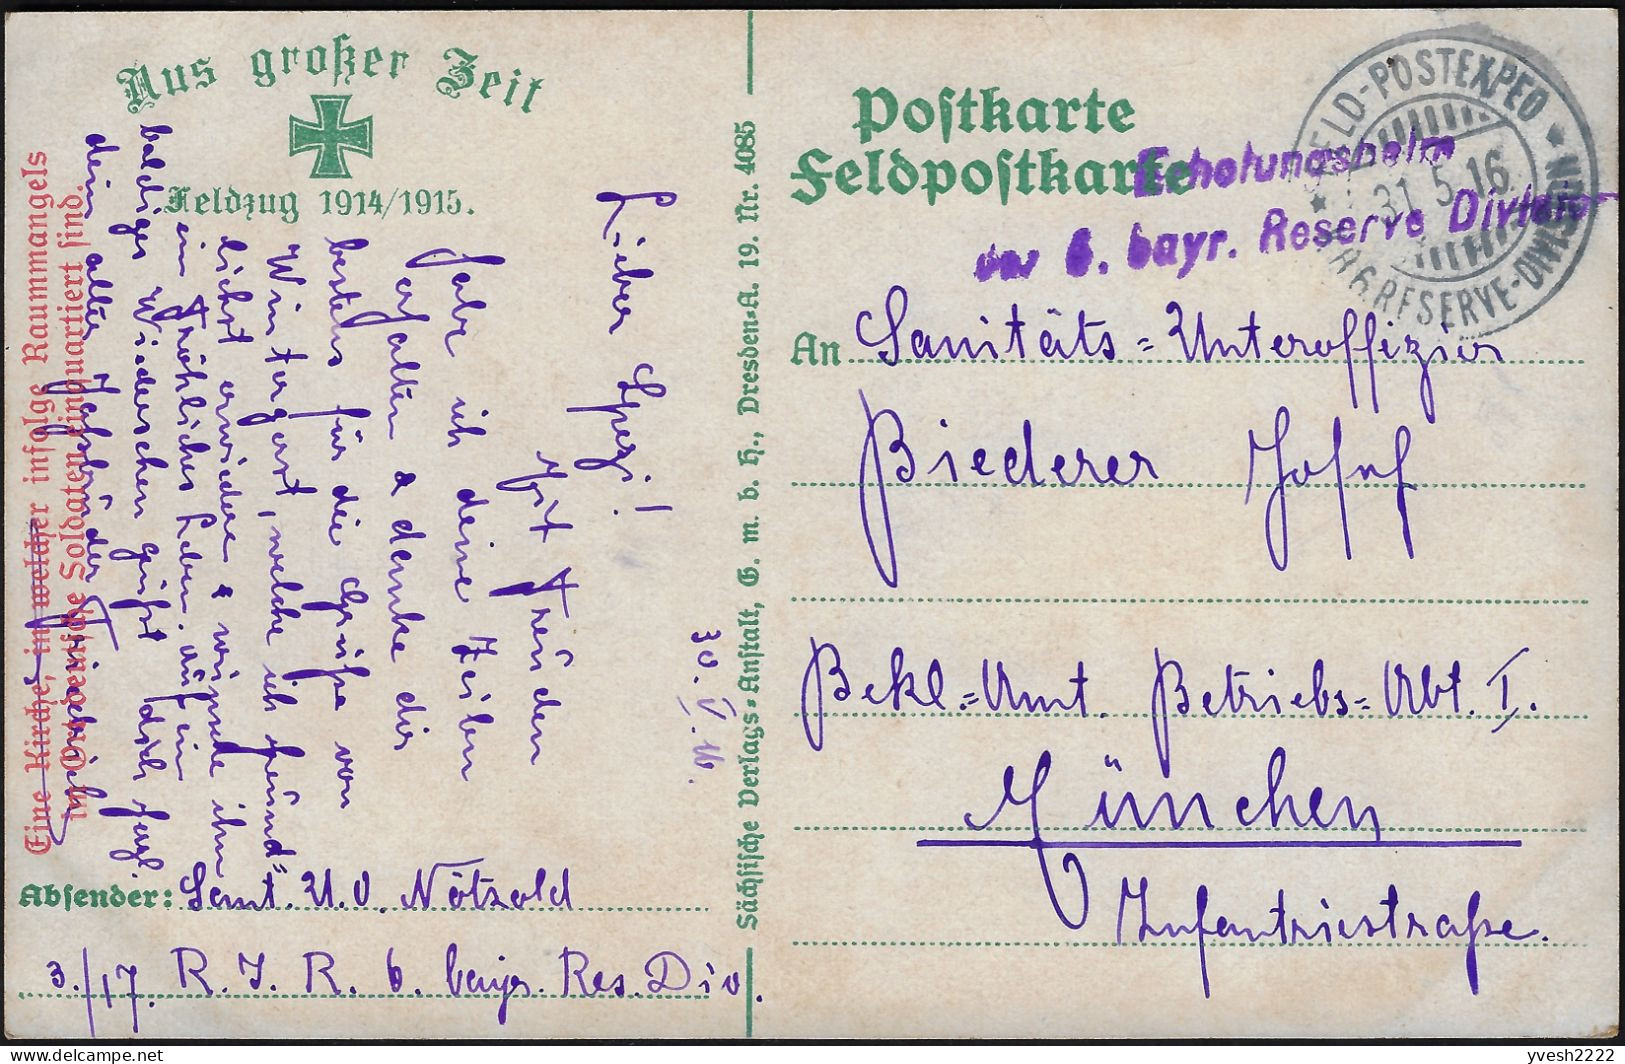 Aus großer Zeit
Feldzug 1914/1915.
Eine Kirche, in welcher infolge Raummangels
in Ortdeutsche Soldaten einquartiert sind.
30. V. 16.
Lieber Spezi!
Mit Freuden
habe ich deine Zeilen
erhalten & danke dir
bestens für die Grüße von
Wintergart, welche ich freund=
lichst erwidere & wünsche ihm
ein fröhliches Leben. Auf ein
baldiges Wiedersehen grüßt dich herzl.
dein alter Jahrbruder Friedrich
Absender: Sant. U. O. Nötzold
3./17. R. I. R. 6. bayr. Res. Div.
Sächsische Verlags-Anstalt, G. m. b. H., Dresden-A. 19. Nr. 4085
Postkarte
Feldpostkarte
Erholungsheim
der 6. bayr. Reserve Division
FELD-POSTEXPED
31 5 16
6.RESERVE-DIVISION
An Sanitäts=Unteroffizier
Biederer Josef
Bekl.=Amt. Betriebs=Abt. I.
München
Infantriestraße.
yvesh2222